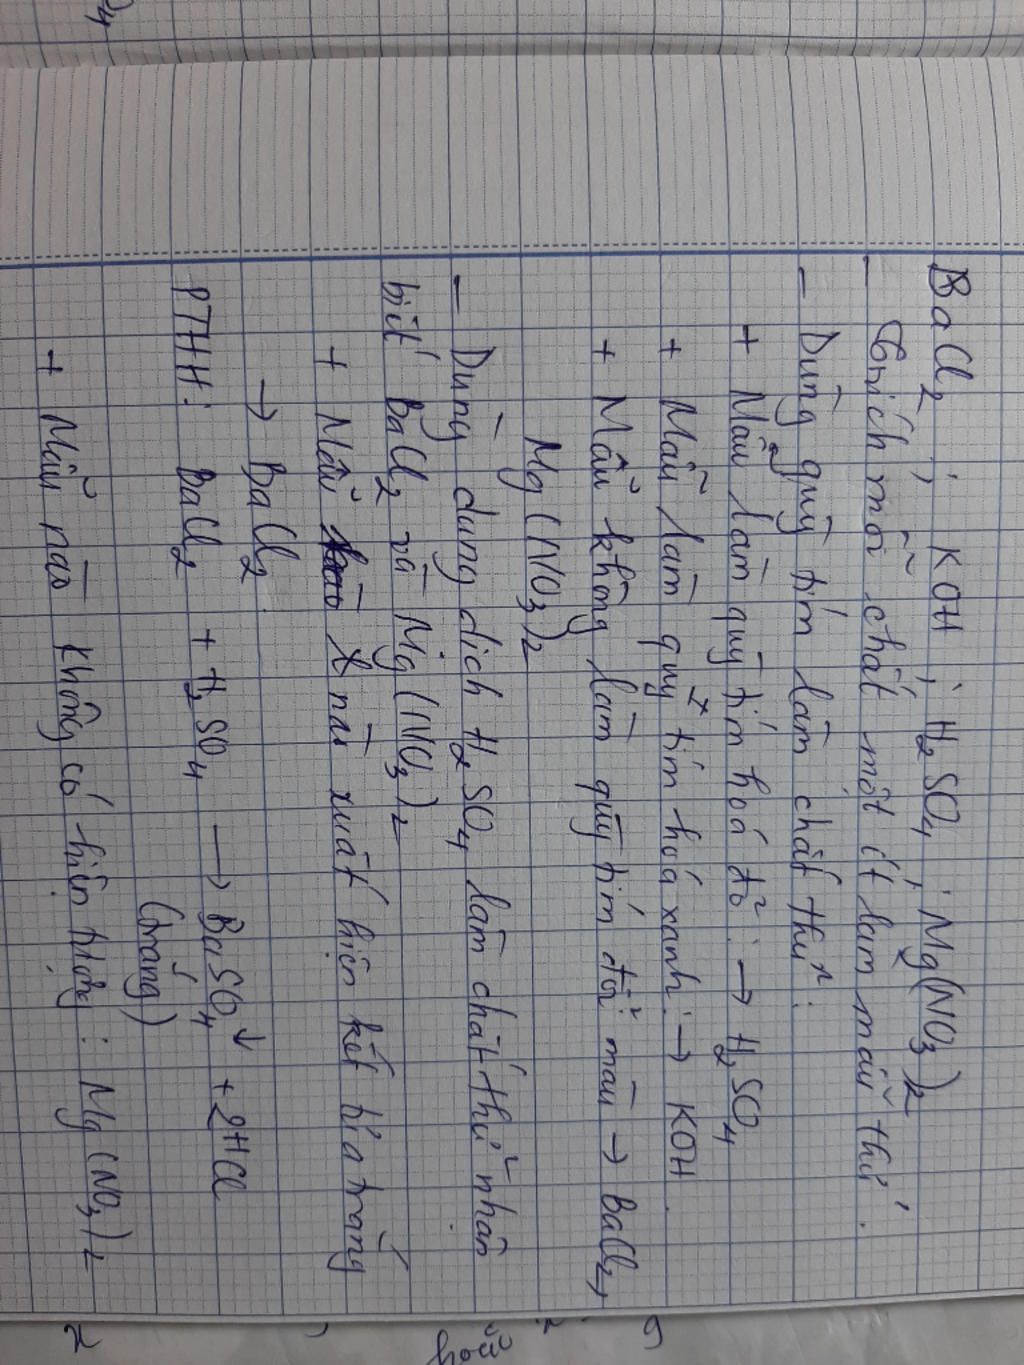 BaCl2 ; KOH ; H2SO4 ; Mg(NO3)2
- Trích mỗi chất một ít làm mẫu thử.
- Dùng quỳ tím làm chất thử :
+ Mẫu làm quỳ tím hoá đỏ : → H2SO4
+ Mẫu làm quỳ tím hoá xanh : → KOH
+ Mẫu không làm quỳ tím đổi màu → BaCl2,
Mg(NO3)2
- Dùng dung dịch H2SO4 làm chất thử nhận
biết BaCl2 và Mg(NO3)2
+ Mẫu nào xuất hiện kết tủa trắng
→ BaCl2
PTHH: BaCl2 + H2SO4 → BaSO4↓ + 2HCl
(trắng)
+ Mẫu nào không có hiện tượng : Mg(NO3)2
hoài